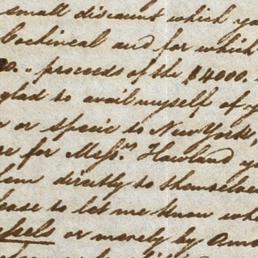 small discount which yo
Cochineal and for which
proceeds of the $4000.
glad to avail myself of y
or specie to New York,
for Messrs. Howland y
directly to themselves
please to let me know wh
or merely by Ame